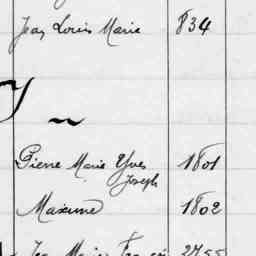 Jean Louis Marie 834
Pierre Marie Yves 1801
Joseph
Maxime 1802
Jean Marie François 2755